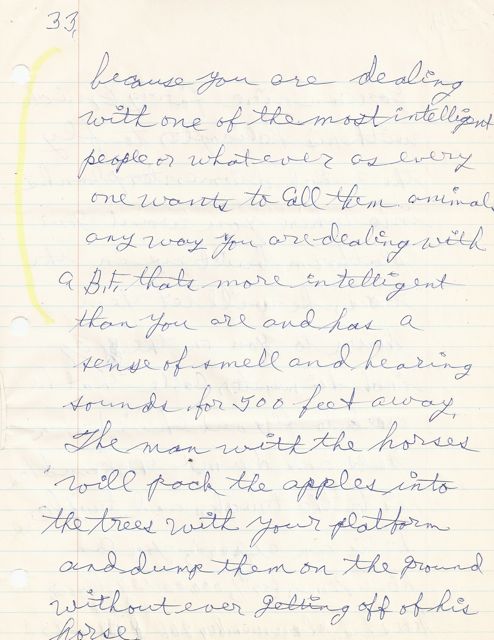 33,
because you are dealing
with one of the most intelligent
people or what ever as every
one wants to call them animals
any way you are dealing with
a B.F. thats more intelligent
than you are and has a
sense of smell and hearing
sounds for 500 feet away.
The man with the horses
will pack the apples into
the trees with your platform
and dump them on the ground
without ever getting off of his
horse.